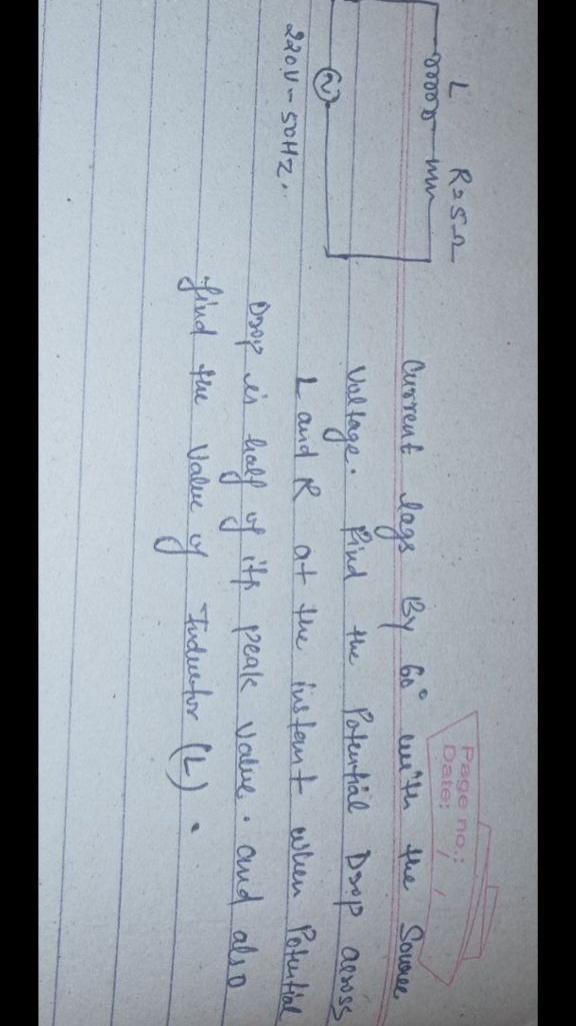 Page no.:
Date: / /
L R=5Ω
220V-50HZ.
Current lags By 60° with the Source
Voltage. Find the Potential Drop across
L and R at the instant when Potential
Drop is half of its peak value. and also
find the Value of Inductor (L).